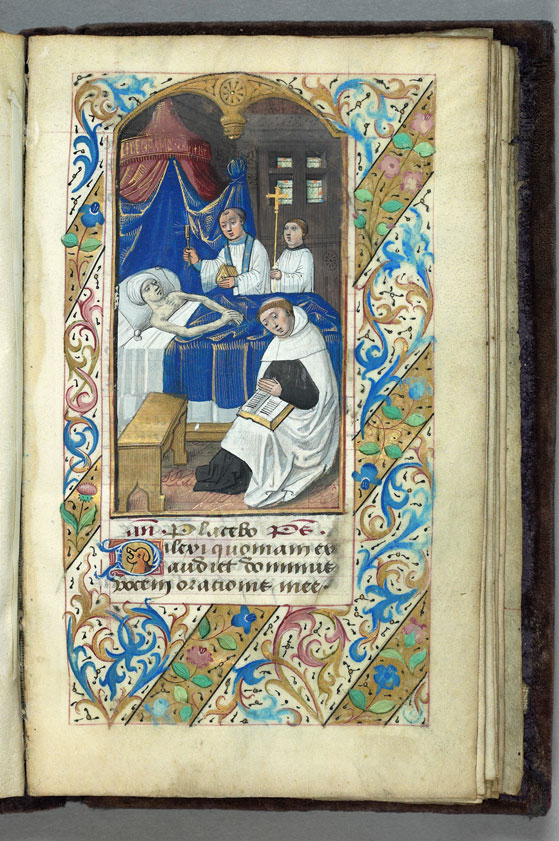 an̄. Placebo. Ps̄.
Dilexi quoniam ex
audiet dominus
vocem orationis mee.